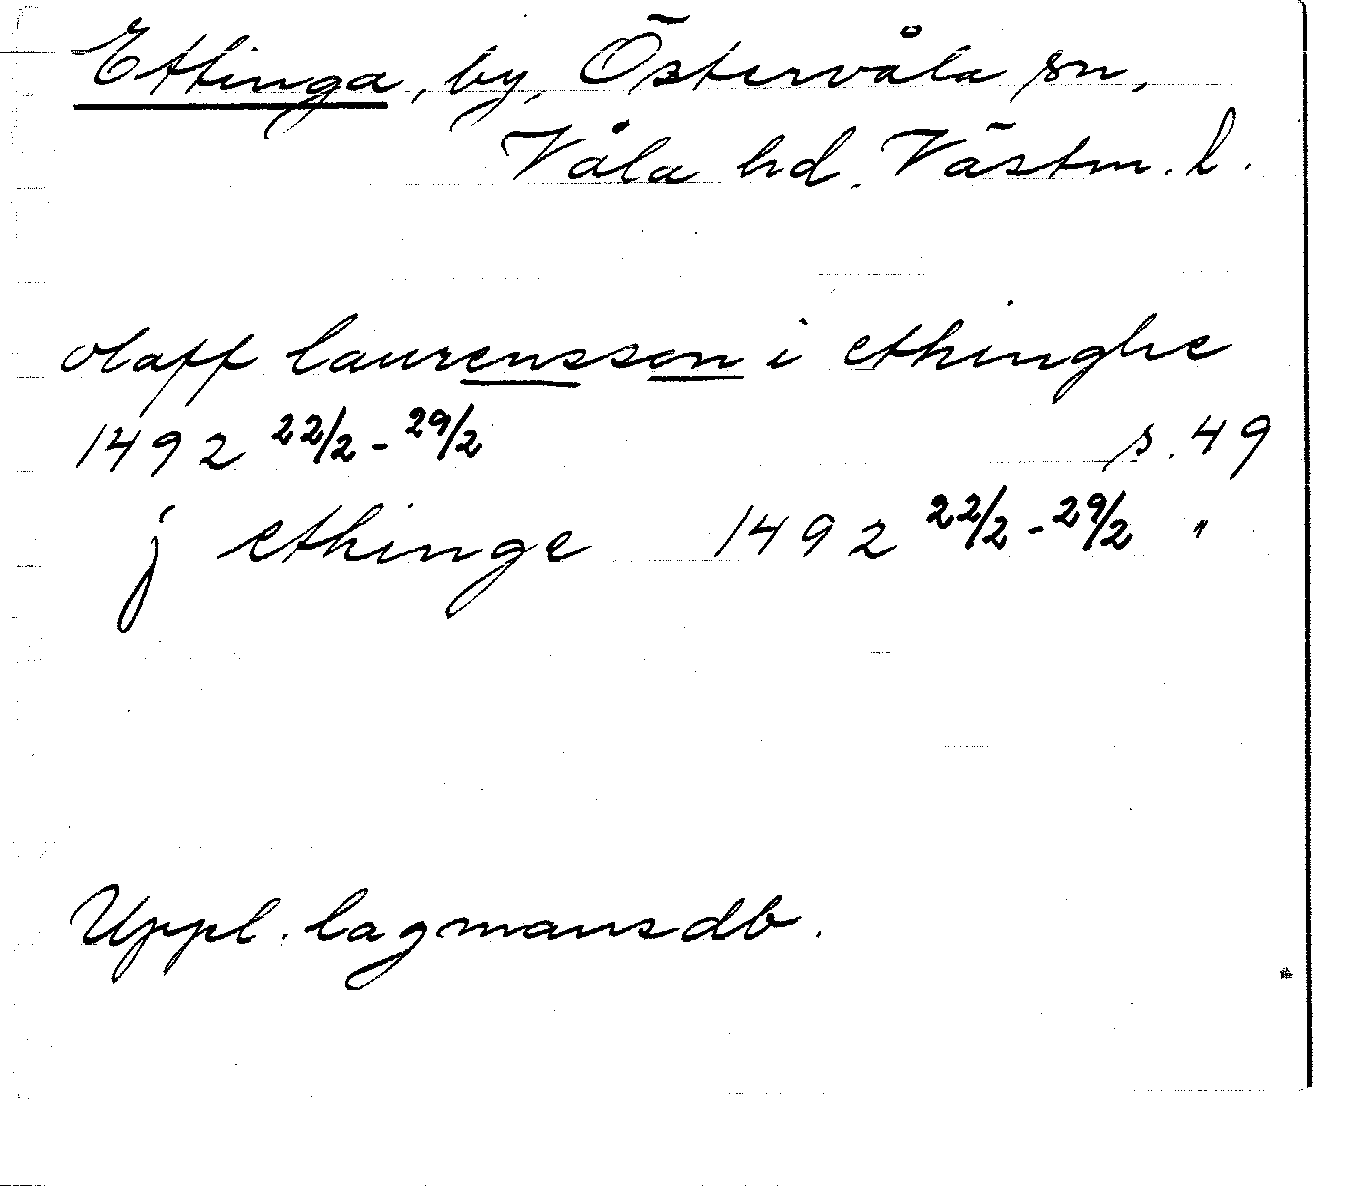 Ettinga, by, Östervåla sn,
Våla hd. Västm. l.
olaff laurensson i ethinghe
1492 22/2 - 29/2 s. 49
j ethinge 1492 22/2 - 29/2 "
Uppl. lagmansdb.